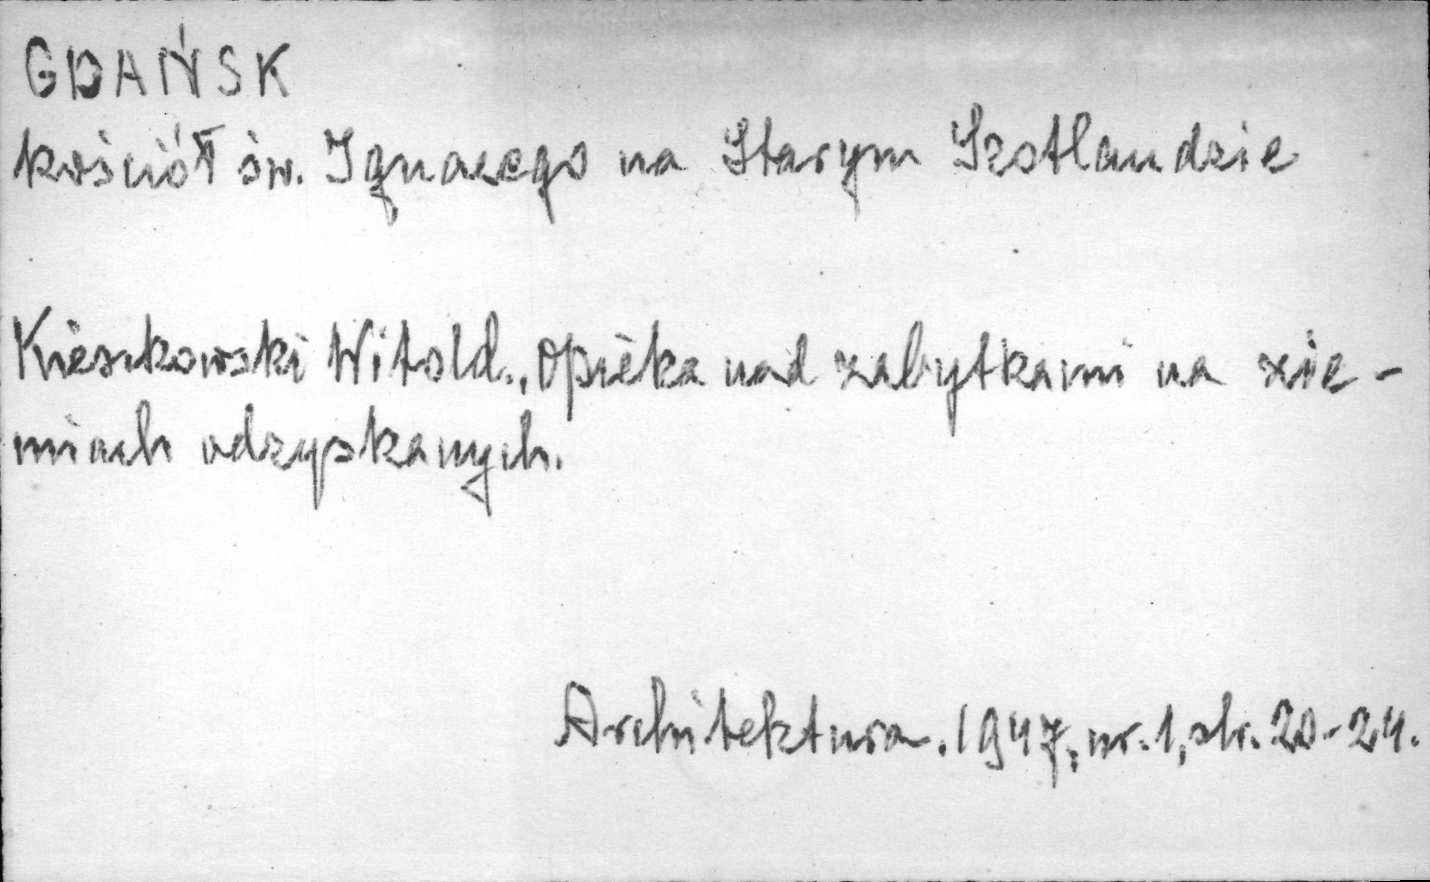 GDAŃSK
kościół św. Ignacego na Starym Szotlandzie
Kieszkowski Witold., Opieka nad zabytkami na zie-
miach odzyskanych.
Architektura. 1947, nr. 1, str. 20-24.